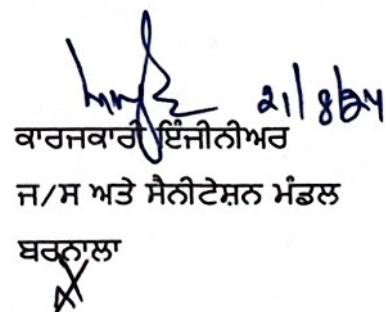 21/8/24
ਕਾਰਜਕਾਰੀ ਇੰਜੀਨੀਅਰ
ਜ/ਸ ਅਤੇ ਸੈਨੀਟੇਸ਼ਨ ਮੰਡਲ
ਬਰਨਾਲਾ